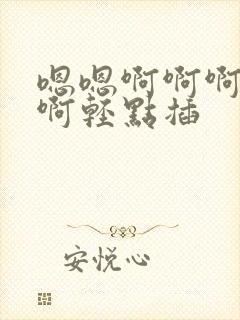 嗯嗯啊啊啊
啊輕點插
安悦心